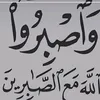 وَٱصْبِرُوٓا۟
ٱللَّهَ مَعَ ٱلصَّٰبِرِينَ